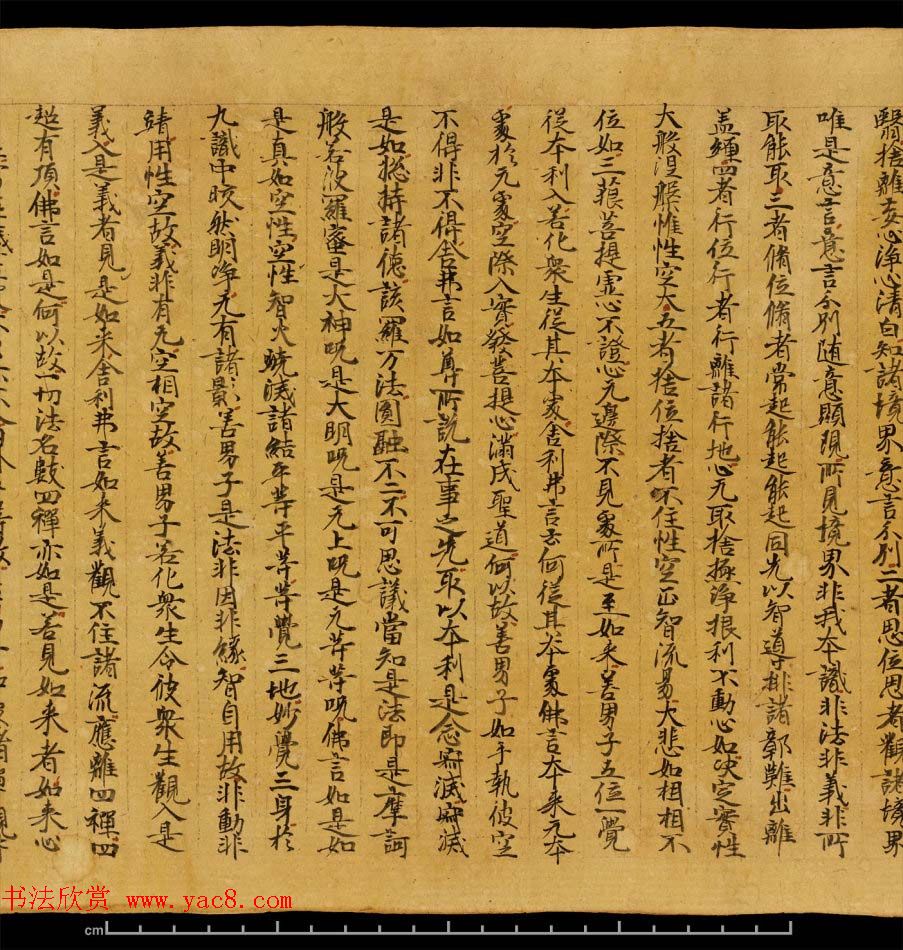 翳捨離妄心淨心清白知諸境界意言分別二者思位思者觀諸境界
唯是意言意言分別随意顯現所見境界非我本識非法非義非所
取能取三者脩位脩者常起能起能起同先以智導排諸鄣難出離
盖纏四者行位行者行離諸行地心无取捨極淨根利不動心如決定實性
大般涅槃惟性空大五者捨位捨者不住性空正智流易大悲如相相不
位如三藐菩提虛心不證心无邊際不見處所是至如来善男子五位一覺
從本利入若化衆生從其本處舍利弗言云何從其本處佛言本来无本
處於无處空際入實發菩提心滿成聖道何以故善男子如手執彼空
不得非不得舍弗言如尊所説在事之先取以本利是念寂滅寂滅
是如総持諸德該羅万法圓融不二不可思議當知是法即是摩訶
般若波羅蜜是大神呪是大明呪是无上呪是无等等呪佛言如是如
是真如空性空性智火燒滅諸結平等平等等覺三地妙覺三身於
九識中皎然明淨无有諸影善男子是法非因非緣智自用故非動非
靖用性空故義非有无空相空故善男子若化衆生令彼衆生觀入是
義入是義者見是如来舍利弗言如来義觀不住諸流應離四禪四
超有頂佛言如是何以故一切法名數四禪亦如是若見如来者如来心
书法欣赏 www.yac8.com
cm